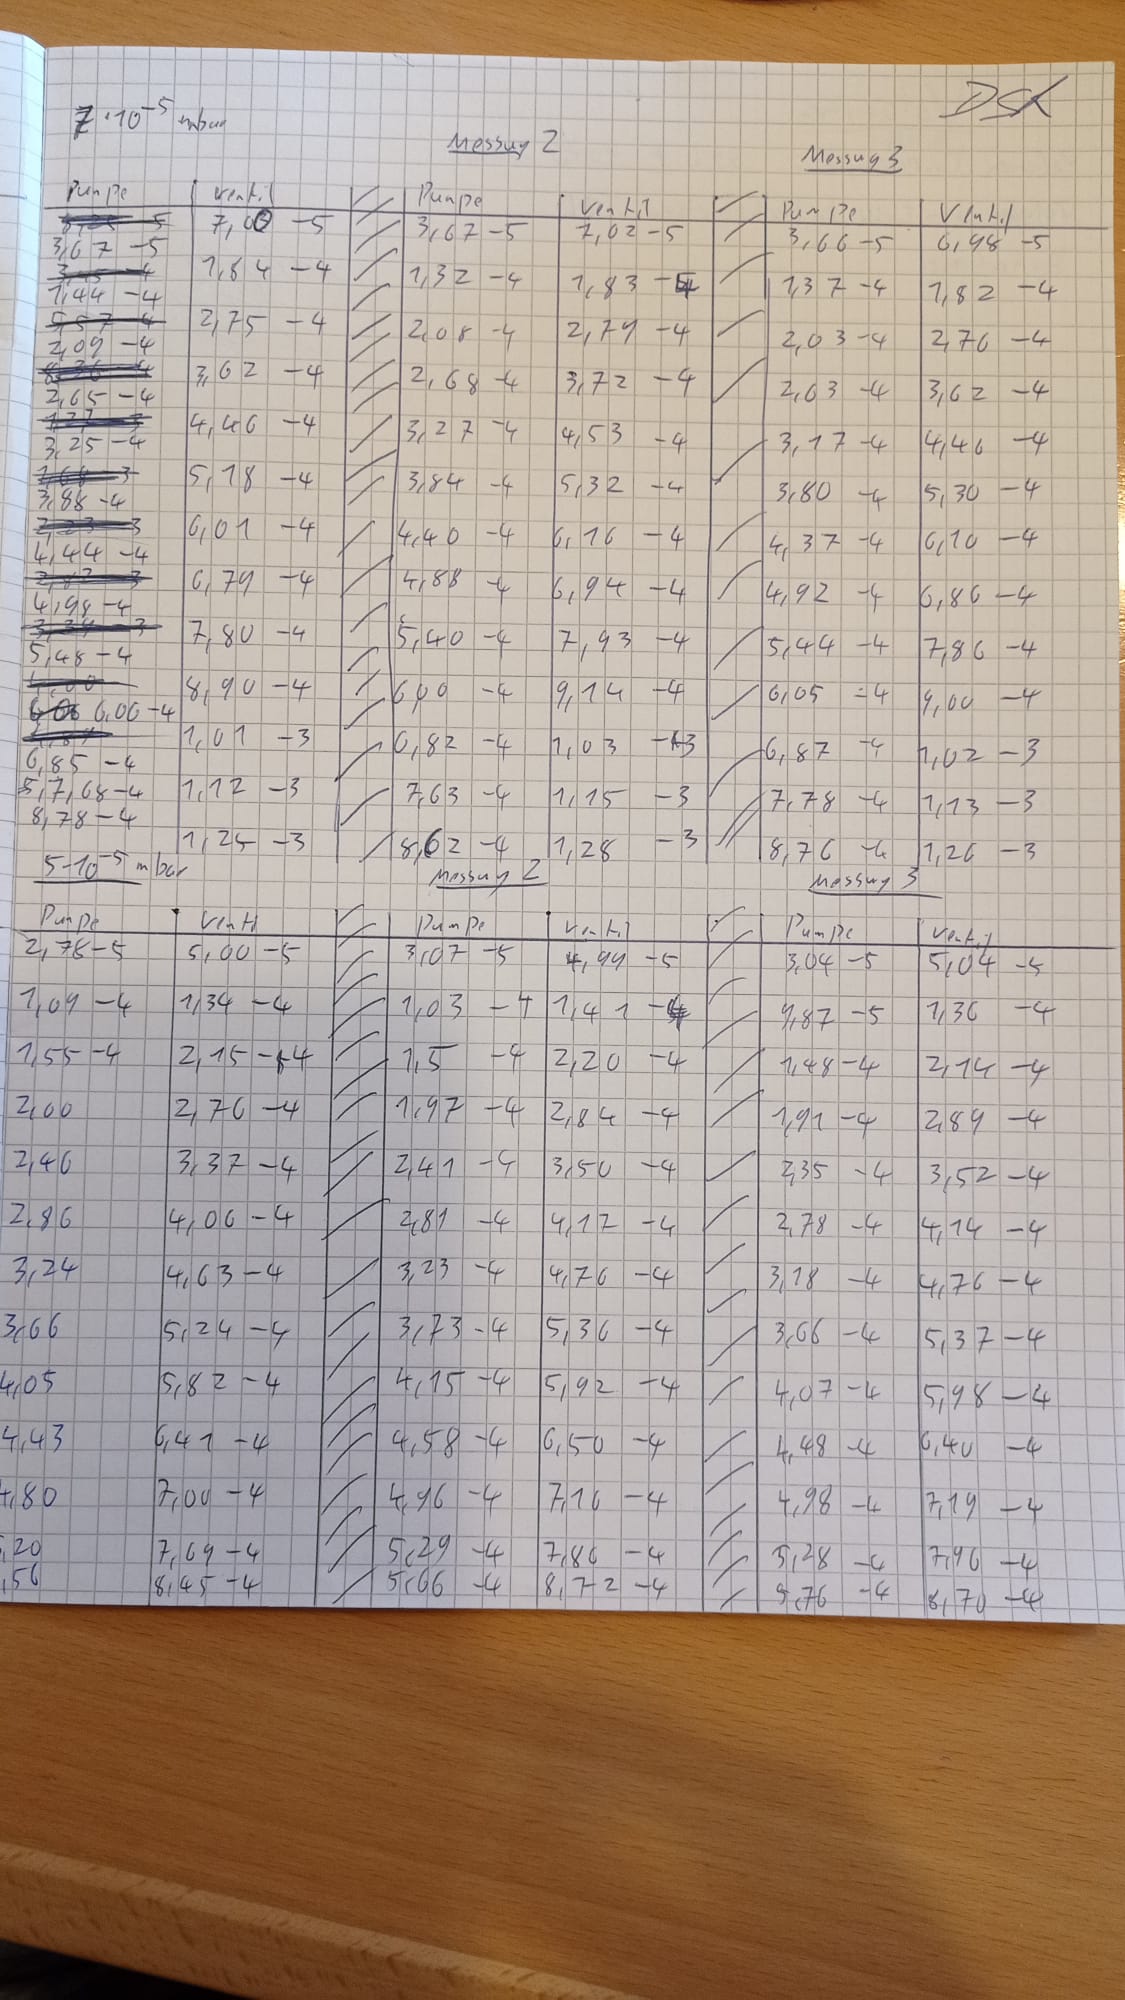 7·10⁻⁵ mbar
Messung 2 Messung 3
Pumpe Ventil Pumpe Ventil Pumpe Ventil
3,67 -5 7,00 -5 3,67 -5 7,02 -5 3,66 -5 6,98 -5
1,44 -4 1,84 -4 1,32 -4 1,83 -4 1,37 -4 1,82 -4
2,09 -4 2,75 -4 2,08 -4 2,79 -4 2,03 -4 2,76 -4
2,65 -4 3,62 -4 2,68 -4 3,72 -4 2,63 -4 3,62 -4
3,25 -4 4,46 -4 3,27 -4 4,53 -4 3,17 -4 4,46 -4
3,88 -4 5,18 -4 3,84 -4 5,32 -4 3,80 -4 5,30 -4
4,44 -4 6,01 -4 4,40 -4 6,16 -4 4,37 -4 6,10 -4
4,98 -4 6,79 -4 4,88 -4 6,94 -4 4,92 -4 6,86 -4
5,48 -4 7,80 -4 5,40 -4 7,93 -4 5,44 -4 7,86 -4
6,06 -4 8,90 -4 6,00 -4 9,14 -4 6,05 -4 9,00 -4
6,85 -4 1,01 -3 6,82 -4 1,03 -3 6,87 -4 1,02 -3
7,68 -4 1,12 -3 7,63 -4 1,15 -3 7,78 -4 1,13 -3
8,78 -4 1,25 -3 8,62 -4 1,28 -3 8,76 -4 1,26 -3
5·10⁻⁵ mbar Messung 2 Messung 3
Pumpe Ventil Pumpe Ventil Pumpe Ventil
2,78 -5 5,00 -5 3,07 -5 4,99 -5 3,04 -5 5,04 -5
1,09 -4 1,34 -4 1,03 -4 1,41 -4 9,87 -5 1,36 -4
1,55 -4 2,15 -4 1,5 -4 2,20 -4 1,48 -4 2,14 -4
2,00 2,76 -4 1,97 -4 2,84 -4 1,91 -4 2,89 -4
2,46 3,37 -4 2,41 -4 3,50 -4 2,35 -4 3,52 -4
2,86 4,06 -4 2,81 -4 4,17 -4 2,78 -4 4,14 -4
3,24 4,63 -4 3,23 -4 4,76 -4 3,18 -4 4,76 -4
3,66 5,24 -4 3,73 -4 5,36 -4 3,66 -4 5,37 -4
4,05 5,82 -4 4,15 -4 5,92 -4 4,07 -4 5,98 -4
4,43 6,41 -4 4,58 -4 6,50 -4 4,48 -4 6,40 -4
4,80 7,00 -4 4,96 -4 7,16 -4 4,98 -4 7,19 -4
,20 7,69 -4 5,29 -4 7,86 -4 5,28 -4 7,96 -4
,56 8,45 -4 5,66 -4 8,72 -4 5,76 -4 8,70 -4